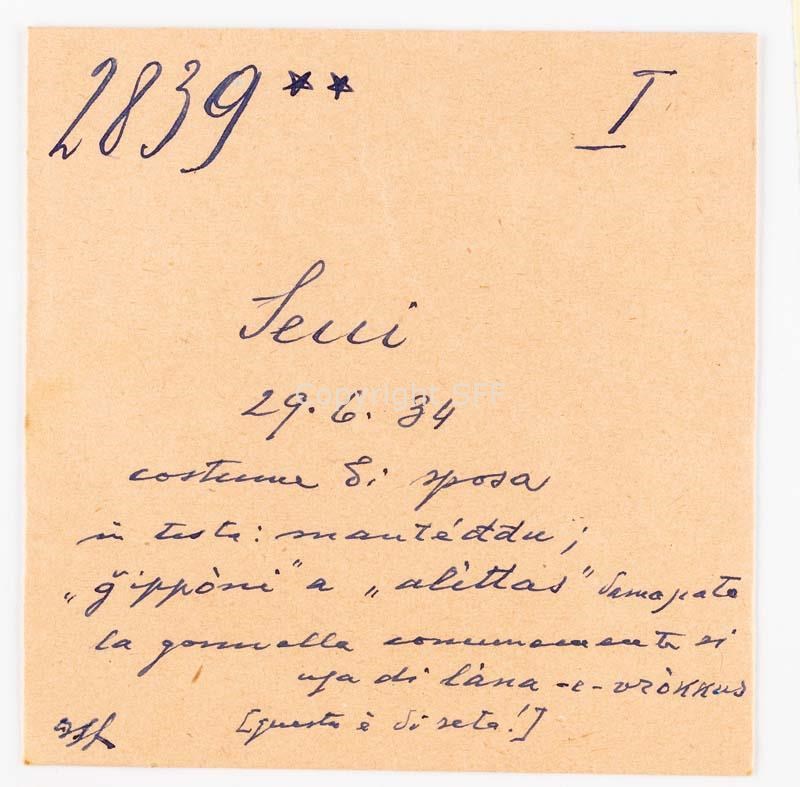 2839**
I
Seui
29.6.34
costume di sposa
in testa: mantéđđu;
„ğippòni" a „alìttas" damascata
la gonnella comunemente si
usa di làna -e- vròkkus
[questa è di seta!]
Copyright SFF